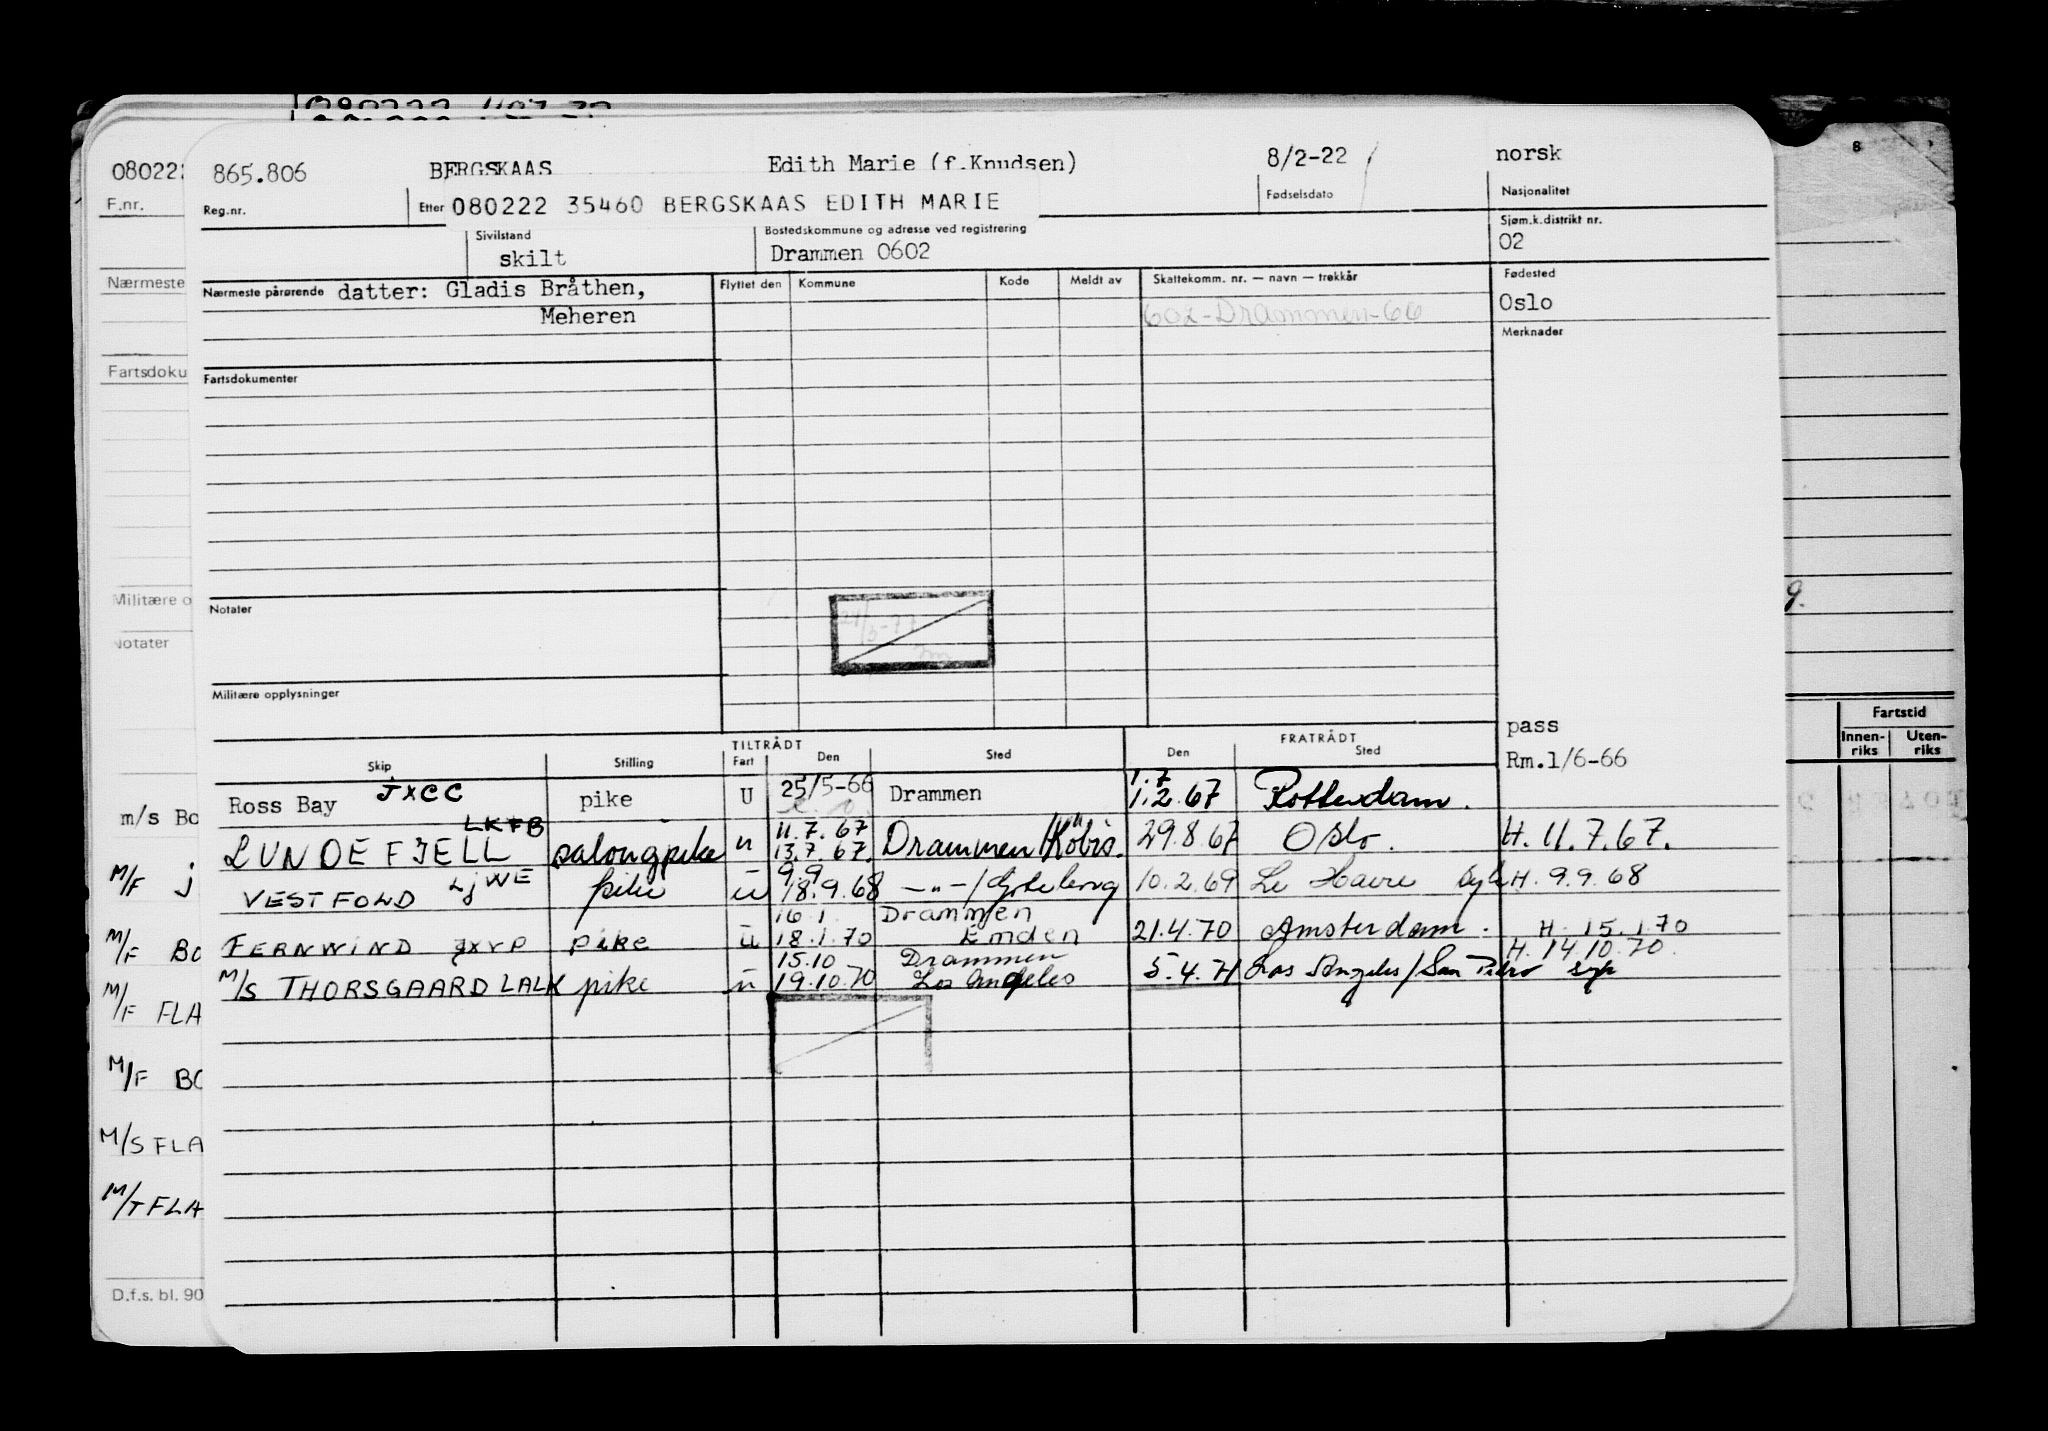 080222 865.806 BERGSKAAS Edith Marie (f.Knudsen) 8/2-22 norsk 8
F.nr. Reg.nr. Etter 080222 35460 BERGSKAAS EDITH MARIE Fødselsdato Nasjonalitet
Sivilstand Bostedskommune og adresse ved registrering Sjøm.k.distrikt nr.
skilt Drammen 0602 02
Nærmeste Nærmeste pårørende datter: Gladis Bråthen, Flyttet den Kommune Kode Meldt av Skattekomm. nr. — navn — trekkår Fødested
Meheren 602-Drammen-66 Oslo
Merknader
Fartsdoku Fartsdokumenter
Militære o Notater
Notater
Militære opplysninger
pass
Fartstid
TILTRÅDT FRATRÅDT
Skip Stilling Fart Den Sted Den Sted Rm.1/6-66
Innen-riks Uten-riks
m/s Bo Ross Bay JXCC pike U 25/5-66 Drammen 1.7 1.2.67 Rotterdam.
LUNDEFJELL LKFB salongpike u 11.7.67 13.7.67. Drammen/Köbh. 29.8.67 Oslo. H. 11.7.67.
M/F j VESTFOLD LJWE pike u 9.9 18.9.68 —"—/Göteborg 10.2.69 Le Havre H. 9.9.68
M/F BO FERNWIND JXVP pike u 16.1 18.1.70 Drammen Emden 21.4.70 Amsterdam. H. 15.1.70
M/S THORSGAARD LALK pike u 15.10 19.10.70 Drammen Los Angeles 5.4.71 Los Angeles/San Pedro syk H. 14.10.70.
M/F FLA
M/F BO
M/S FLA
M/T FLA
D.f.s. bl. 90